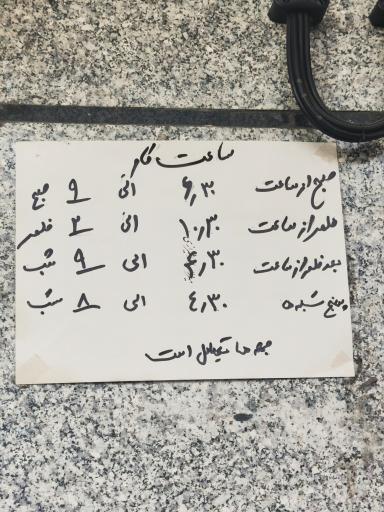 ساعت کار
صبح از ساعت ۶٫۳۰ الی ۹ صبح
ظهر از ساعت ۱۰٫۳۰ الی ۲ ظهر
بعد ظهر از ساعت ۴٫۳۰ الی ۹ شب
پنج شنبه ٤٫۳۰ الی ۸ شب
جمعه ها تعطیل است